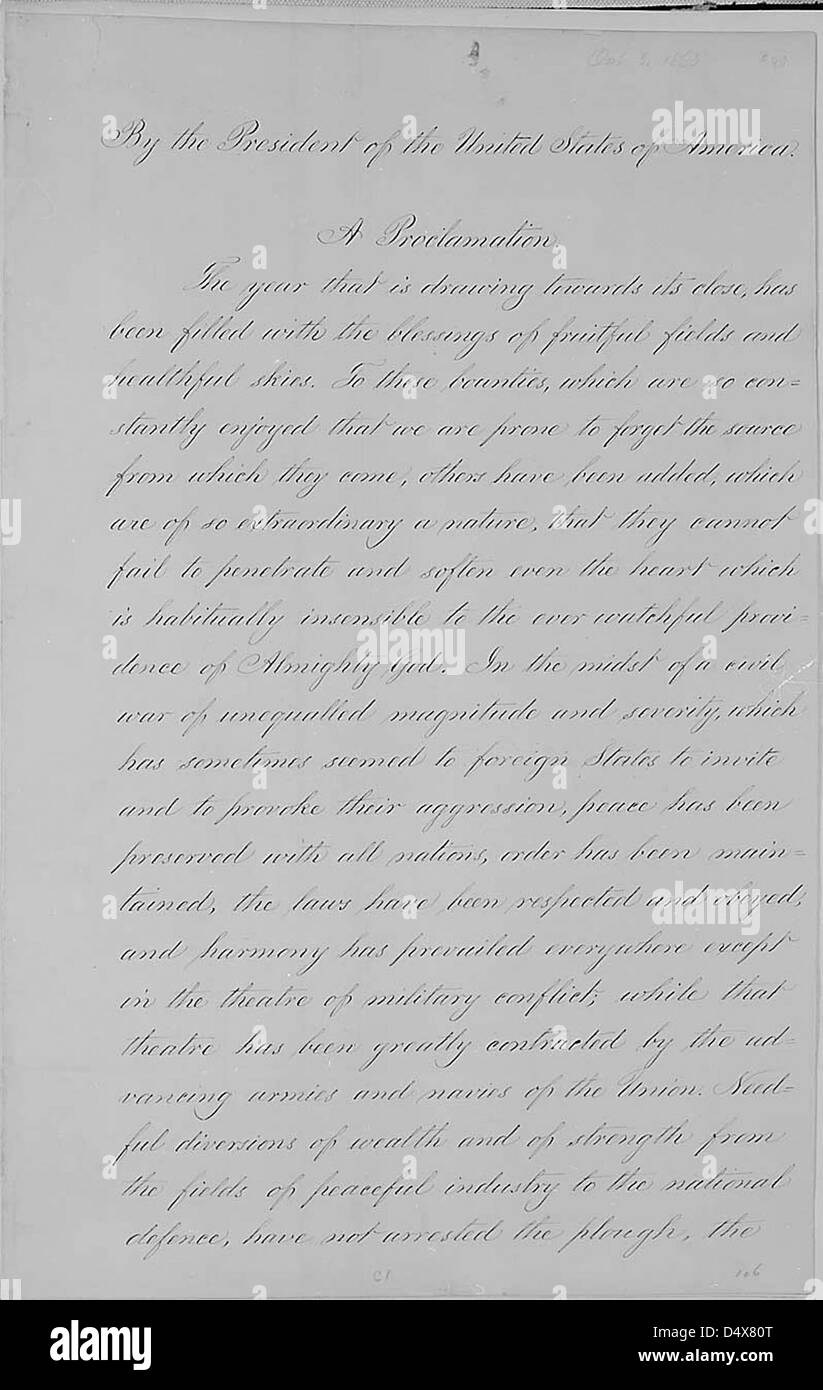 Oct 3, 1863
By the President of the United States of America.
A Proclamation.
The year that is drawing towards its close, has
been filled with the blessings of fruitful fields and
healthful skies. To these bounties, which are so con=
stantly enjoyed that we are prone to forget the source
from which they come, others have been added, which
are of so extraordinary a nature, that they cannot
fail to penetrate and soften even the heart which
is habitually insensible to the ever watchful provi=
dence of Almighty God. In the midst of a civil
war of unequalled magnitude and severity, which
has sometimes seemed to foreign States to invite
and to provoke their aggression, peace has been
preserved with all nations, order has been main=
tained, the laws have been respected and obeyed,
and harmony has prevailed everywhere except
in the theatre of military conflict; while that
theatre has been greatly contracted by the ad=
vancing armies and navies of the Union. Need=
ful diversions of wealth and of strength from
the fields of peaceful industry to the national
defence, have not arrested the plough, the
106
alamy
alamy
alamy
alamy
Image ID: D4X80T
www.alamy.com